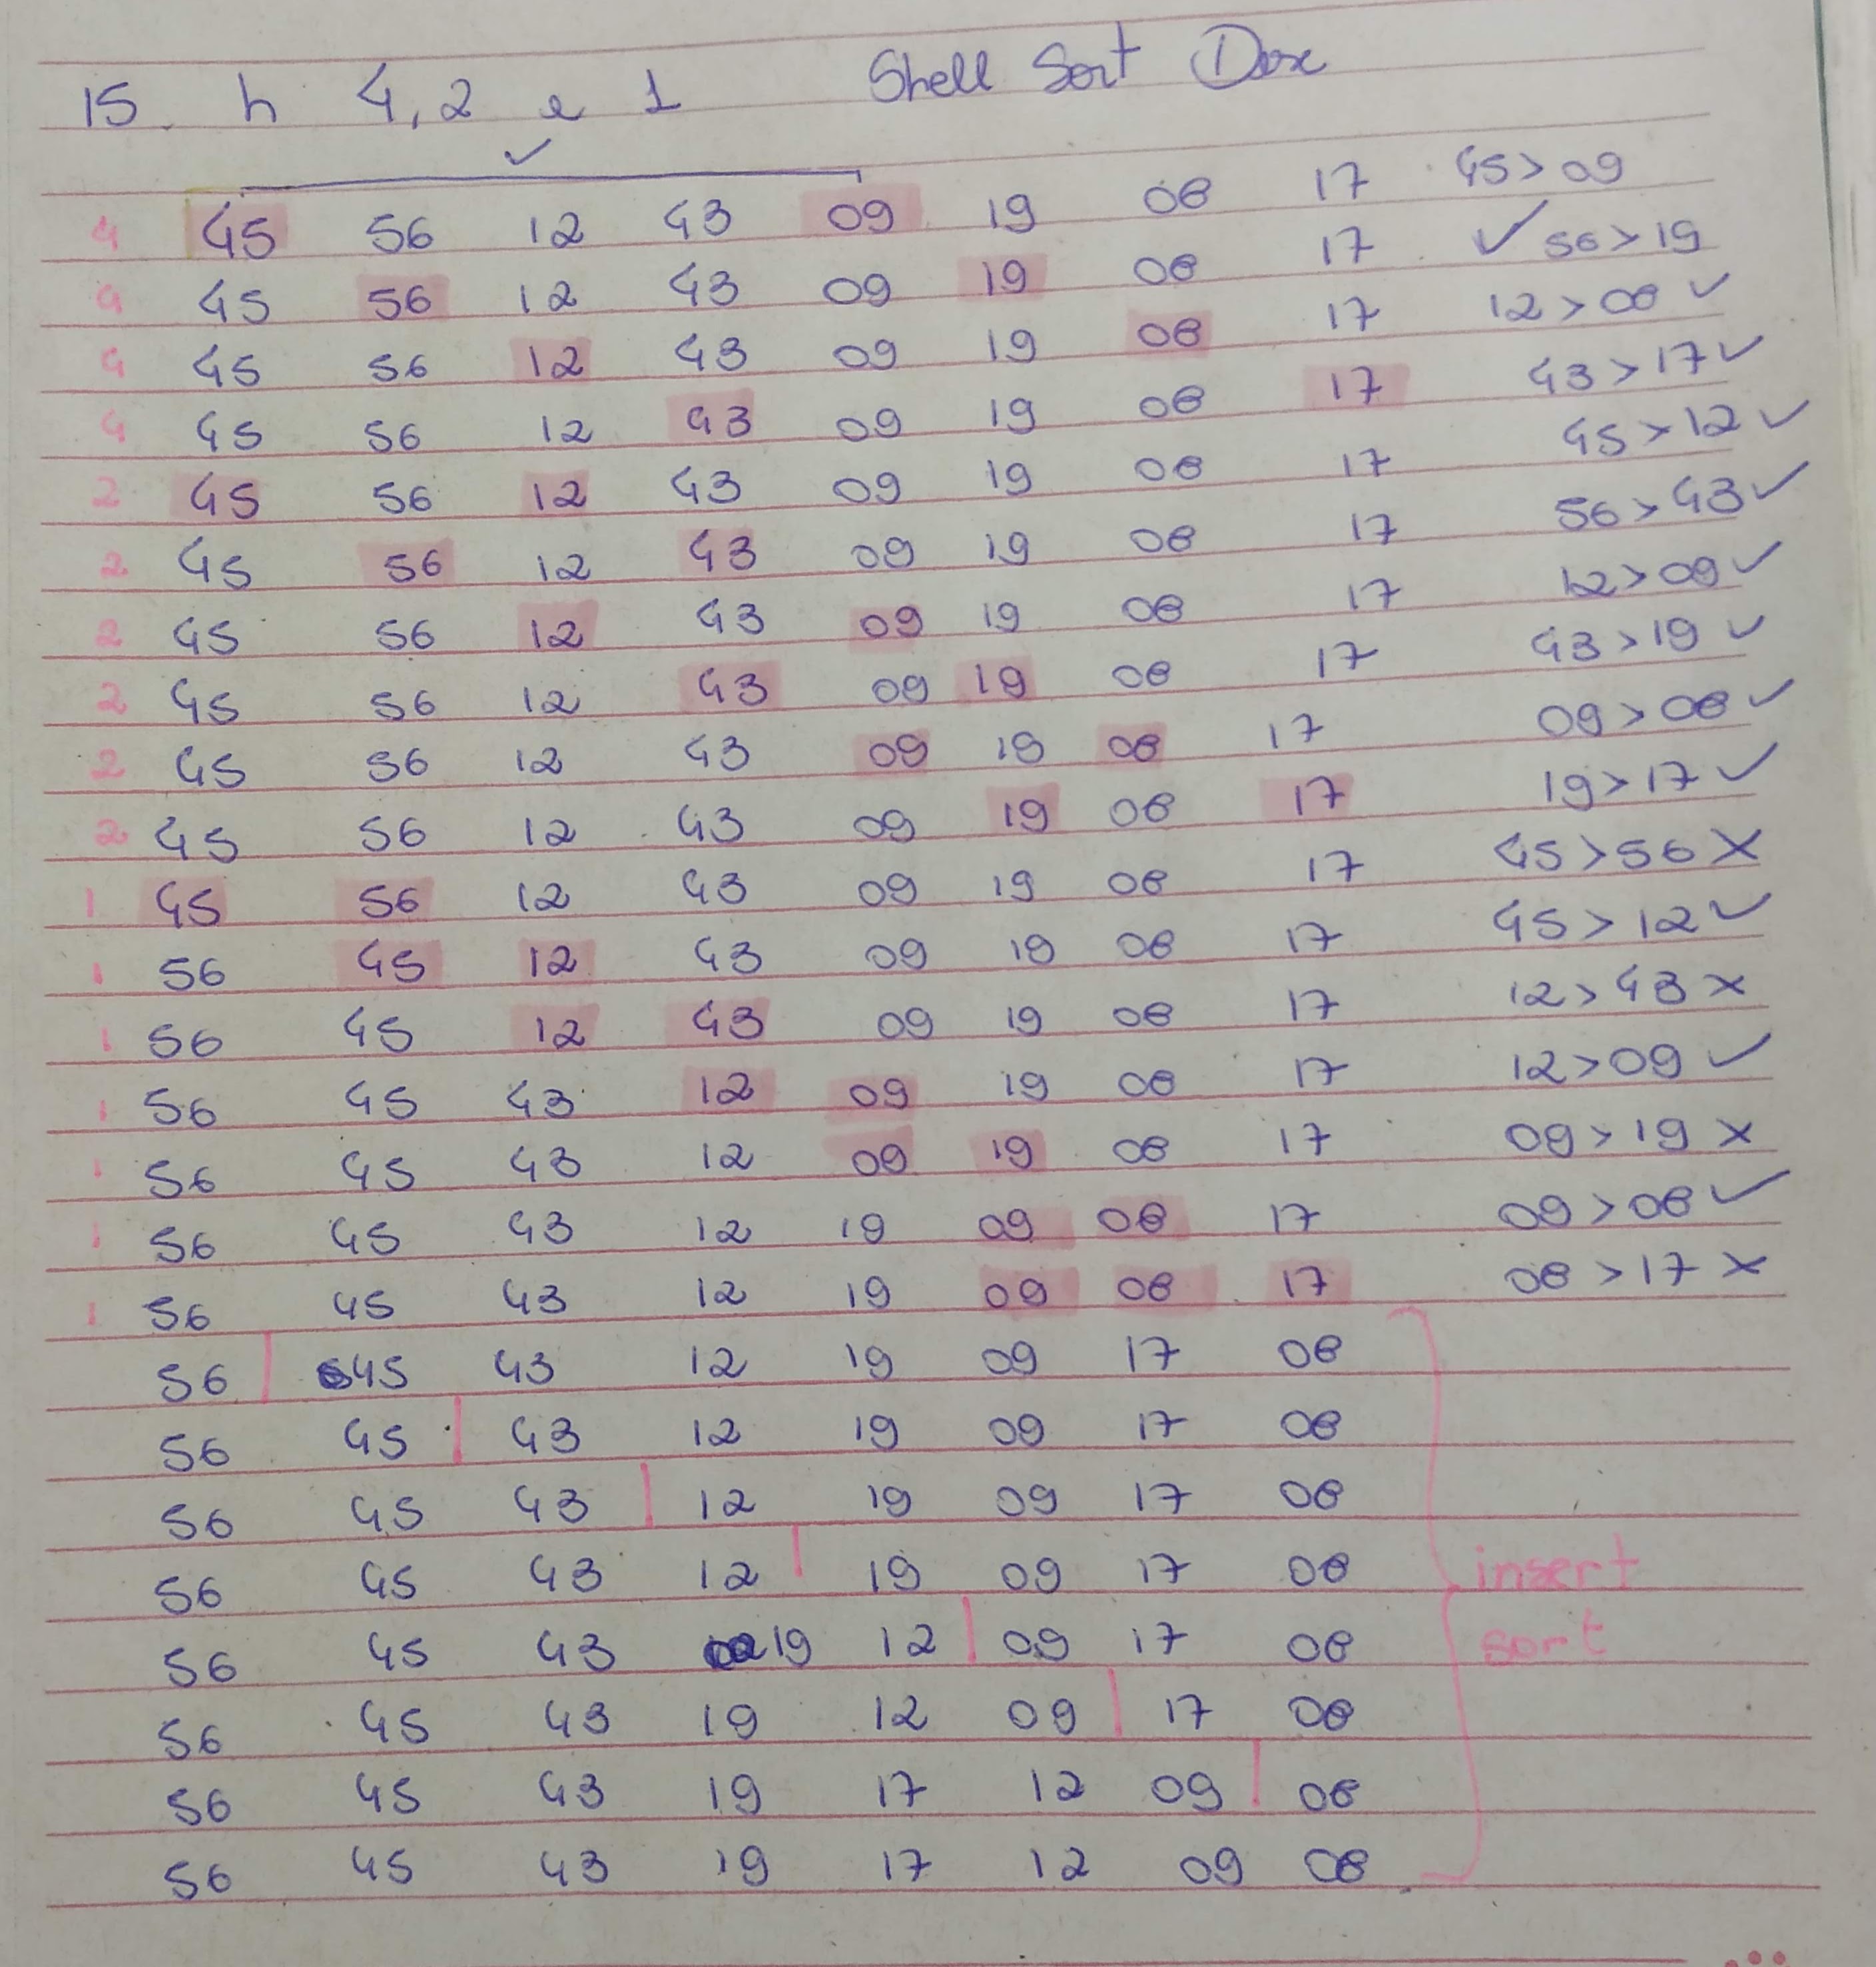 15. h 4,2 e 1 Shell Sort Dec
✓
4 45 56 12 43 09 19 08 17 45>09
4 45 56 12 43 09 19 08 17 ✓ 56>19
4 45 56 12 43 09 19 08 17 12>08 ✓
4 45 56 12 43 09 19 08 17 43>17 ✓
2 45 56 12 43 09 19 08 17 45>12 ✓
2 45 56 12 43 09 19 08 17 56>43 ✓
2 45 56 12 43 09 19 08 17 12>09 ✓
2 45 56 12 43 09 19 08 17 43>19 ✓
2 45 56 12 43 09 19 08 17 09>08 ✓
2 45 56 12 43 09 19 08 17 19>17 ✓
1 45 56 12 43 09 19 08 17 45>56 X
1 56 45 12 43 09 19 08 17 45>12 ✓
1 56 45 12 43 09 19 08 17 12>43 X
1 56 45 43 12 09 19 08 17 12>09 ✓
1 56 45 43 12 09 19 08 17 09>19 X
1 56 45 43 12 19 09 08 17 09>08 ✓
1 56 45 43 12 19 09 08 17 08>17 X
56 | 45 43 12 19 09 17 08
56 45 | 43 12 19 09 17 08
56 45 43 | 12 19 09 17 08
56 45 43 12 | 19 09 17 08 insert
56 45 43 19 12 | 09 17 08 sort
56 45 43 19 12 09 | 17 08
56 45 43 19 17 12 09 | 08
56 45 43 19 17 12 09 08